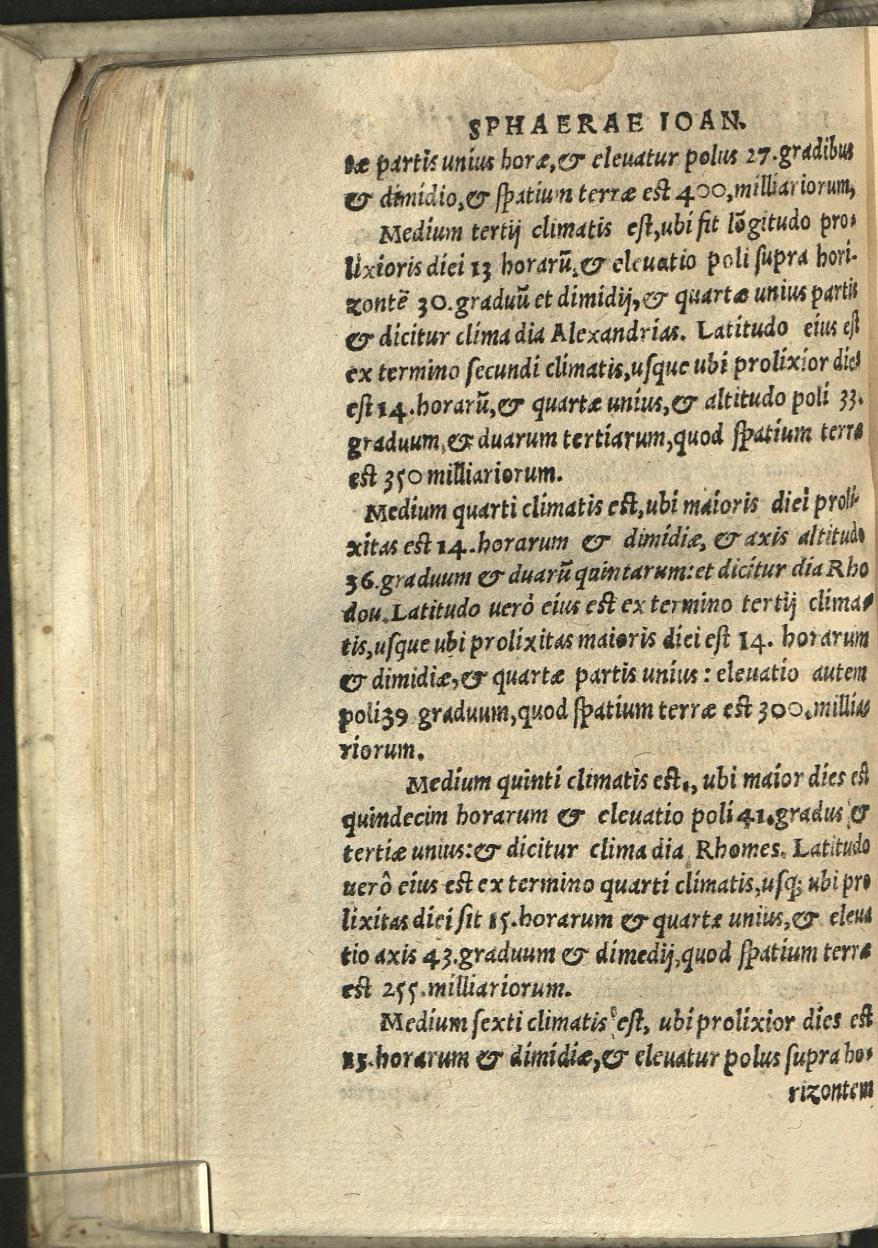 SPHAERAE IOAN.
tæ partis unius horæ,& eleuatur polus 27.gradibus
& dimidio,& spatium terræ est 400,milliariorum,
Medium tertij climatis est,ubi fit lõgitudo pro-
lixioris diei 13 horarũ,& eleuatio poli supra hori-
zontẽ 30.graduũ et dimidij,& quartæ unius partis
& dicitur clima dia Alexandrias. Latitudo eius est
ex termino secundi climatis,usque ubi prolixior dies
est 14.horarũ,& quartæ unius,& altitudo poli 33.
graduum,& duarum tertiarum,quod spatium terræ
est 350 milliariorum.
Medium quarti climatis est,ubi maioris diei proli-
xitas est 14.horarum & dimidiæ, & axis altitudo
36.graduum & duarũ quintarum:et dicitur dia Rho
dou.Latitudo uerò eius est ex termino tertij clima-
tis,usque ubi prolixitas maioris diei est 14. horarum
& dimidiæ,& quartæ partis unius : eleuatio autem
poli39 graduum,quod spatium terræ est 300.millia
riorum.
Medium quinti climatis est., ubi maior dies est
quindecim horarum & eleuatio poli 41.gradus &
tertiæ unius:& dicitur clima dia Rhomes. Latitudo
uerô eius est ex termino quarti climatis,usq; ubi pro
lixitas diei sit 15.horarum & quartæ unius,& eleua
tio axis 43.graduum & dimedij,quod spatium terræ
est 255.milliariorum.
Medium sexti climatis est, ubi prolixior dies est
15.horarum & dimidiæ,& eleuatur polus supra ho-
rizontem